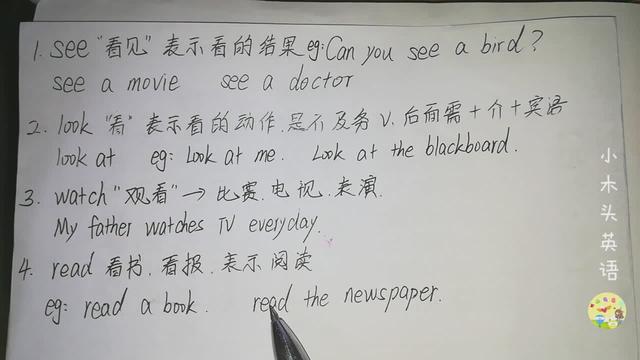 1. see "看见" 表示看的结果 eg: Can you see a bird?
see a movie see a doctor
2. look "看" 表示看的动作.是不及务V.后面需+介+宾语
look at eg: Look at me. Look at the blackboard.
3. watch "观看" → 比赛.电视.表演.
My father watches TV everyday.
4. read 看书.看报.表示阅读
eg: read a book. read the newspaper.
小木头英语